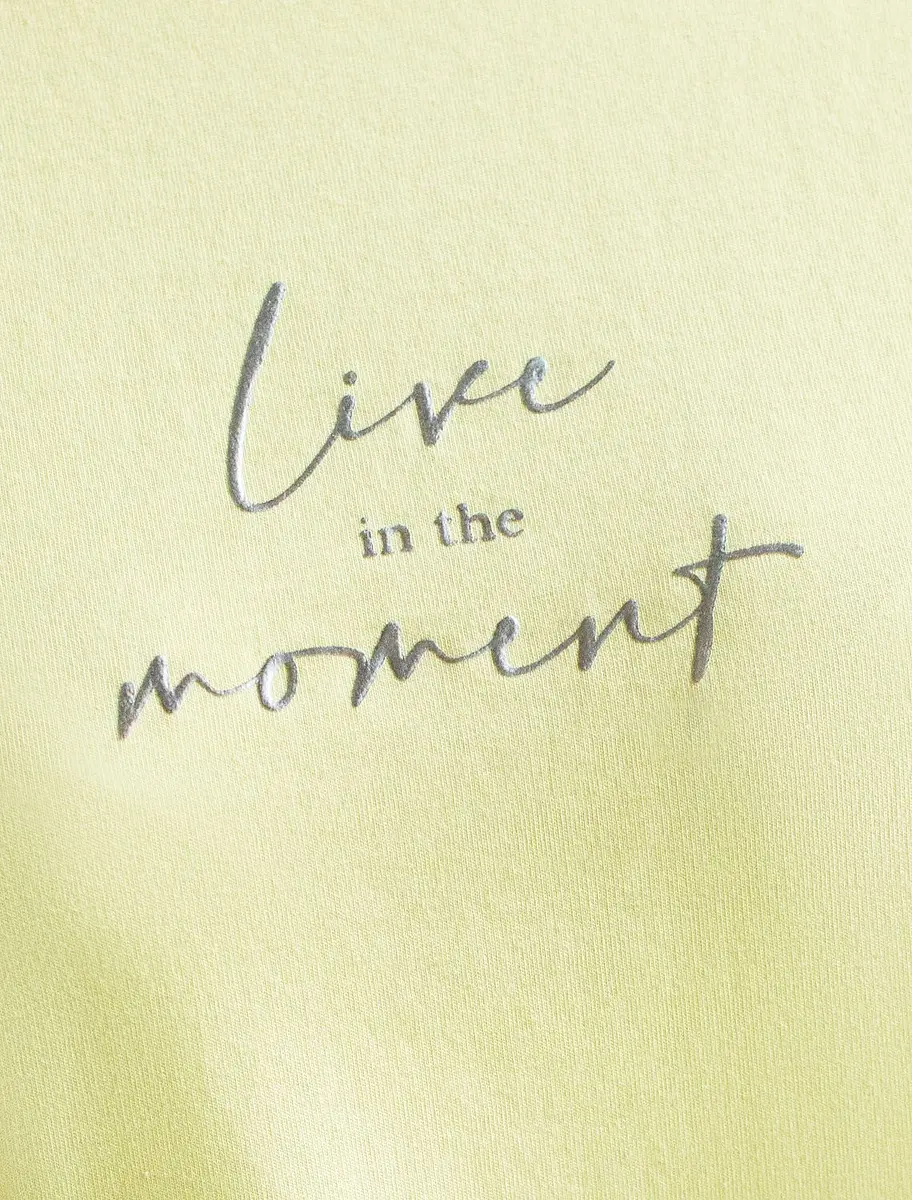 Live
in the
moment